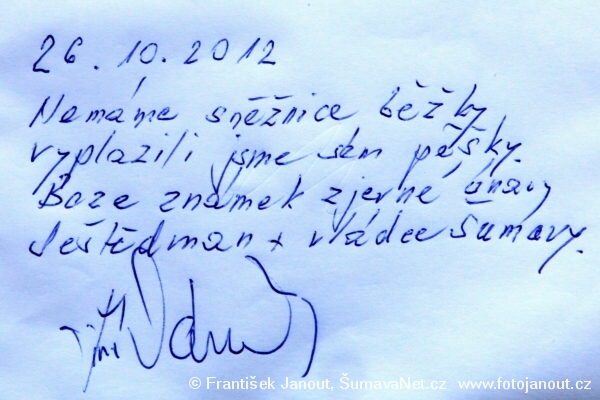 26.10.2012
Nemáme sněžnice běžky
vyplazili jsme sem pěšky.
Beze známek zjevné únavy
Ještědman + vládce Šumavy.
Jiří
© František Janout, ŠumavaNet.cz www.fotojanout.cz